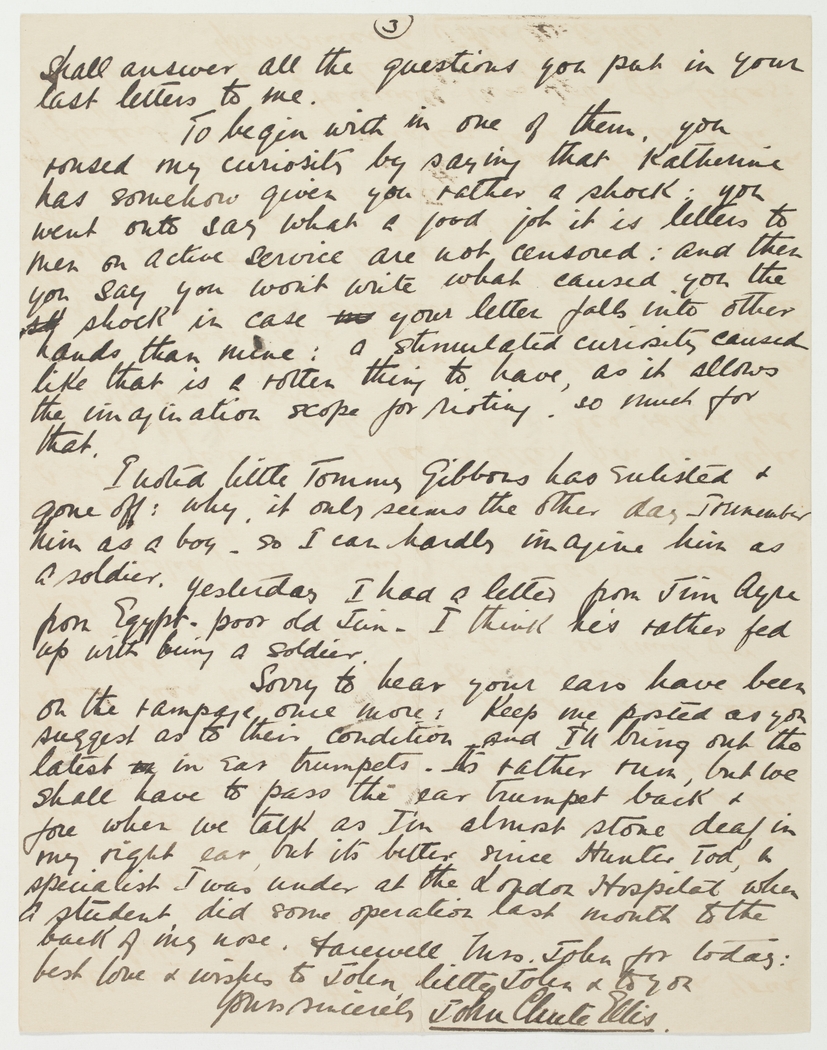 3
shall answer all the questions you put in your
last letters to me.
To begin with in one of them, you
roused my curiosity by saying that Katherine
has somehow given you rather a shock: you
went onto say what a good job it is letters to
men on active service are not censored: and then
you say you wont write what caused you the
shock in case your letter falls into other
hands than mine: a stimulated curiosity caused
like that is a rotten thing to have, as it allows
the imagination scope for rioting. so much for
that.
I noted little Tommy Gibbons has enlisted &
gone off: why, it only seems the other day I remember
him as a boy - so I can hardly imagine him as
a soldier. yesterday I had a letter from Jim Ayre
from Egypt - poor old Jim - I think he's rather fed
up with being a soldier.
Sorry to hear your ears have been
on the rampage once more: Keep me posted as you
suggest as to their condition and I'll bring out the
latest in ear trumpets. Its rather rum, but we
shall have to pass the ear trumpet back &
fore when we talk as I'm almost stone deaf in
my right ear, but its better since Hunter Tod, a
specialist I was under at the London Hospital when
a student, did some operation last month to the
back of my nose. Farewell Mrs. John for today:
best love & wishes to John little John & to you
Yours sincerely John Chute Ellis.